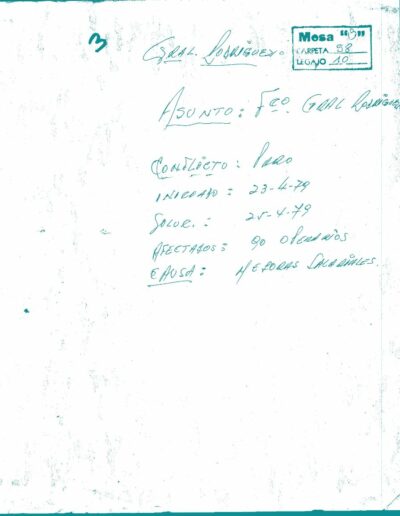 3
GRAL. RODRIGUEZ.
Mesa "B"
CARPETA 98
LEGAJO 10
ASUNTO: Fco. GRAL RODRIGUEZ
CONFLICTO: PARO
INICIADO = 23-4-79
SOLUC. : 25-4-79
AFECTADOS = 90 OPERARIOS
CAUSA : MEJORAS SALARIALES.